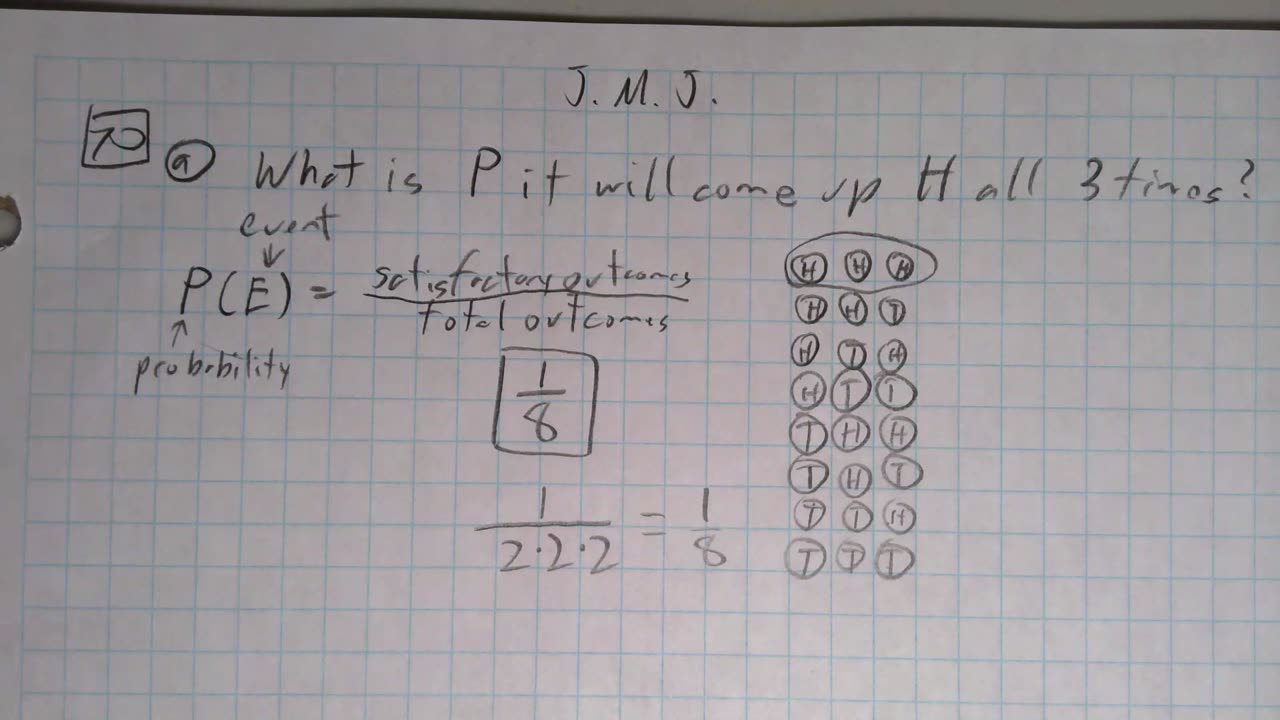 J. M. J.
70 a What is P it will come up H all 3 times?
event
P(E) = satisfactory outcomes
total outcomes
probability
1
8
1
2·2·2
= 1
8
H H H
H H T
H T H
H T T
T H H
T H T
T T H
T T T